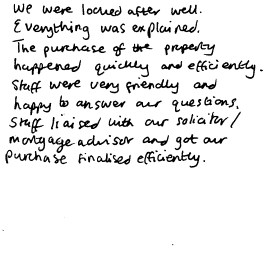 We were looked after well.
Everything was explained.
The purchase of the property
happened quickly and efficiently.
Staff were very friendly and
happy to answer our questions.
Staff liaised with our solicitor/
mortgage advisor and got our
purchase finalised efficiently.